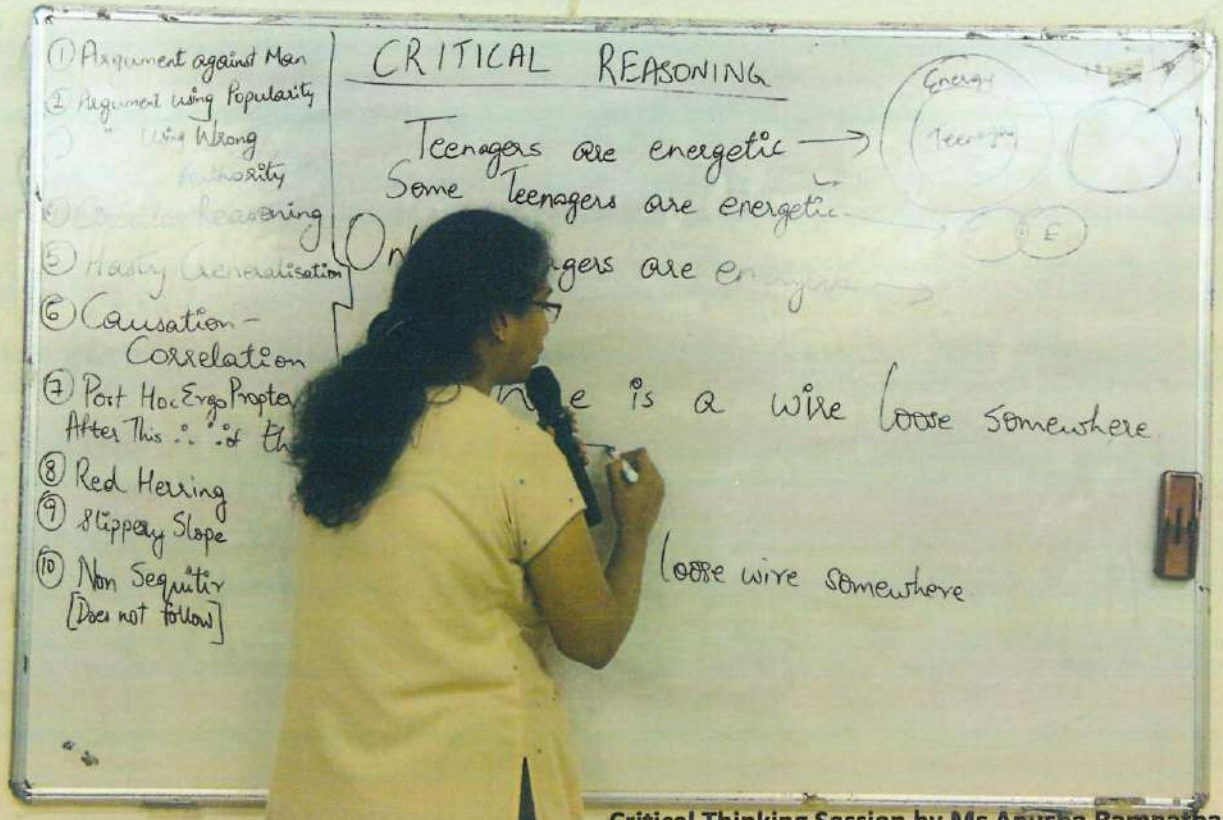 ① Argument against Man
② Argument using Popularity
" Using Wrong
Authority
Reasoning
⑤ Hasty Generalisation
⑥ Causation -
Correlation
⑦ Post Hoc Ergo Propter
After This ∴ of th
⑧ Red Herring
⑨ Slippery Slope
⑩ Non Sequitir
[Does not follow]
CRITICAL REASONING
Teenagers are energetic →
Some Teenagers are energetic
are
is a wire loose somewhere
loose wire somewhere
Energy
E
Critical Thinking Session by Ms Anusha Ramnatha